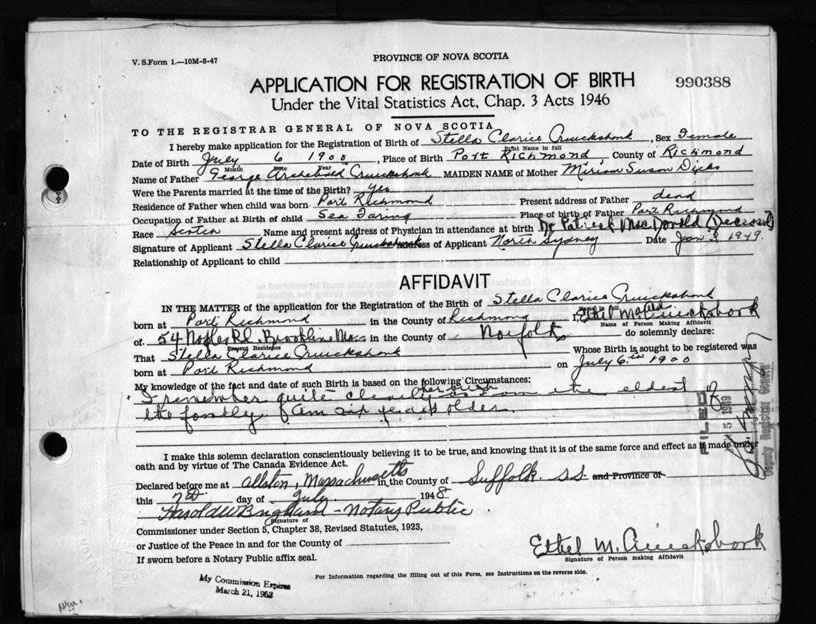 V. S. Form 1.—10M-8-47
PROVINCE OF NOVA SCOTIA
APPLICATION FOR REGISTRATION OF BIRTH
990388
Under the Vital Statistics Act, Chap. 3 Acts 1946
TO THE REGISTRAR GENERAL OF NOVA SCOTIA
I hereby make application for the Registration of Birth of Stella Clarice Cruickshank, Sex Female
Print Name in full
Date of Birth July 6 1900, Place of Birth Port Richmond, County of Richmond
Month Date Year
Name of Father George Archibald Cruickshank MAIDEN NAME of Mother Miriam Susan Dicks
Were the Parents married at the time of the Birth? yes
Residence of Father when child was born Port Richmond Present address of Father dead
Occupation of Father at Birth of child Sea Faring Place of birth of Father Port Richmond
Race Scotch Name and present address of Physician in attendance at birth Dr Patrick MacDonald (Deceased)
Signature of Applicant Stella Clarice Cruickshank Address of Applicant North Sydney Date Jan 3, 1949.
Relationship of Applicant to child
AFFIDAVIT
IN THE MATTER of the application for the Registration of the Birth of Stella Clarice Cruickshank
born at Port Richmond in the County of Richmond I, Ethel Cruickshank
Name of Person Making Affidavit
of 54 Rd. Brookline Mass in the County of Norfolk do solemnly declare:
Present Residence
That Stella Clarice Cruickshank Whose Birth is sought to be registered was
born at Port Richmond on July 6th 1900
My knowledge of the fact and date of such Birth is based on the following Circumstances:
I remember quite clearly her birth as I am the eldest of
the family. I am six years older.
FILED
5 1949
Deputy Registrar General
I make this solemn declaration conscientiously believing it to be true, and knowing that it is of the same force and effect as if made under
oath and by virtue of The Canada Evidence Act.
Declared before me at Allston, Massachusetts in the County of Suffolk S.S. and Province of
this 7th day of July 1948
Harold W Bingham - Notary Public
Signature of
Commissioner under Section 5, Chapter 38, Revised Statutes, 1923,
or Justice of the Peace in and for the County of
If sworn before a Notary Public affix seal.
Ethel M. Cruickshank
Signature of Person making Affidavit
My Commission Expires
March 21, 1952
For Information regarding the filling out of this Form, see Instructions on the reverse side.